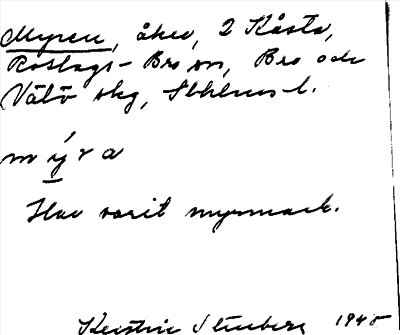 Myren, åker, 2 Kåsta,
Roslags-Bro sn, Bro och
Vätö skg, Sthlms l.
mýra
Har varit myrmark.
Kerstin Stenberg 1945